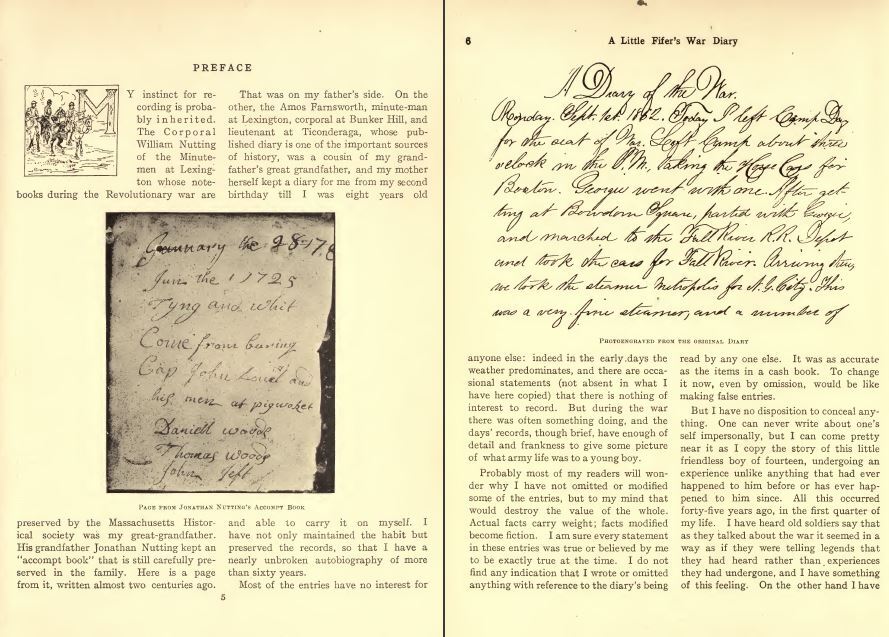 PREFACE
MY instinct for re-
cording is proba-
bly inherited.
The Corporal
William Nutting
of the Minute-
men at Lexing-
ton whose note-
books during the Revolutionary war are
That was on my father's side. On the
other, the Amos Farnsworth, minute-man
at Lexington, corporal at Bunker Hill, and
lieutenant at Ticonderoga, whose pub-
lished diary is one of the important sources
of history, was a cousin of my grand-
father's great grandfather, and my mother
herself kept a diary for me from my second
birthday till I was eight years old
January the 28 17
Jun the 1 1725
Tyng and whit
Come from buring
Cap John and
his men at pigwoket
Daniell woods
Thomas woods
John Jeft
PAGE FROM JONATHAN NUTTING'S ACCOMPT BOOK
preserved by the Massachusetts Histor-
ical society was my great-grandfather.
His grandfather Jonathan Nutting kept an
"accompt book" that is still carefully pre-
served in the family. Here is a page
from it, written almost two centuries ago.
and able to carry it on myself. I
have not only maintained the habit but
preserved the records, so that I have a
nearly unbroken autobiography of more
than sixty years.
Most of the entries have no interest for
5
6
A Little Fifer's War Diary
A Diary of the War.
Monday. Sept. 1st. 1862. Today I left Camp Day
for the seat of War. Left Camp about three
o'clock in the P.M., taking the Horse Cars for
Boston. Georgie went with me. After get-
ting at Bowdoin Square, parted with Georgie,
and marched to the Fall River R.R. Depot
and took the cars for Fall River. Arriving there,
we took the steamer Metropolis for N.Y. City. This
was a very fine steamer, and a number of
PHOTOENGRAVED FROM THE ORIGINAL DIARY
anyone else: indeed in the early days the
weather predominates, and there are occa-
sional statements (not absent in what I
have here copied) that there is nothing of
interest to record. But during the war
there was often something doing, and the
days' records, though brief, have enough of
detail and frankness to give some picture
of what army life was to a young boy.
Probably most of my readers will won-
der why I have not omitted or modified
some of the entries, but to my mind that
would destroy the value of the whole.
Actual facts carry weight; facts modified
become fiction. I am sure every statement
in these entries was true or believed by me
to be exactly true at the time. I do not
find any indication that I wrote or omitted
anything with reference to the diary's being
read by any one else. It was as accurate
as the items in a cash book. To change
it now, even by omission, would be like
making false entries.
But I have no disposition to conceal any-
thing. One can never write about one's
self impersonally, but I can come pretty
near it as I copy the story of this little
friendless boy of fourteen, undergoing an
experience unlike anything that had ever
happened to him before or has ever hap-
pened to him since. All this occurred
forty-five years ago, in the first quarter of
my life. I have heard old soldiers say that
as they talked about the war it seemed in a
way as if they were telling legends that
they had heard rather than experiences
they had undergone, and I have something
of this feeling. On the other hand I have